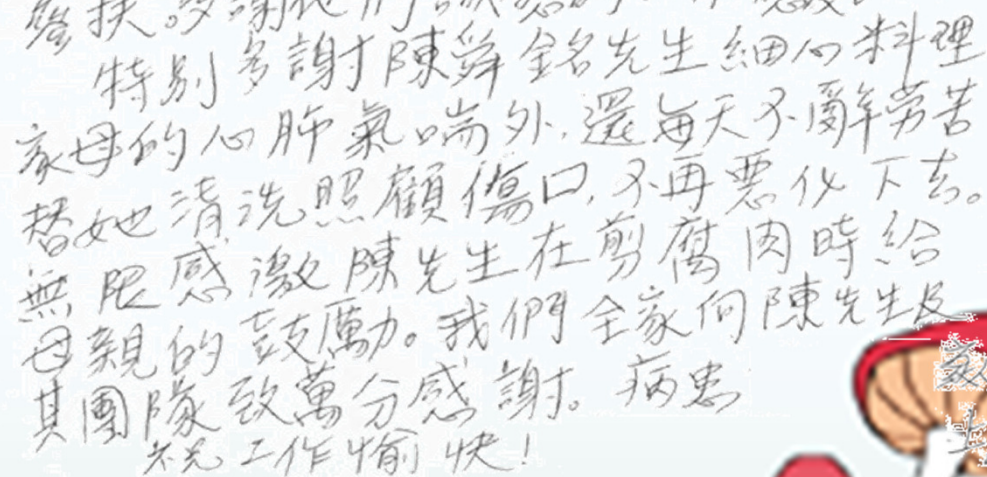 多謝他們
特別多謝陳舜銘先生細心料理
家母的心肺氣喘外,還每天不辭勞苦
替她清洗照顧傷口,不再惡化下去。
無限感激陳先生在剪腐肉時給
母親的鼓勵。我們全家向陳先生及
其團隊致萬分感謝。病患
祝工作愉快!